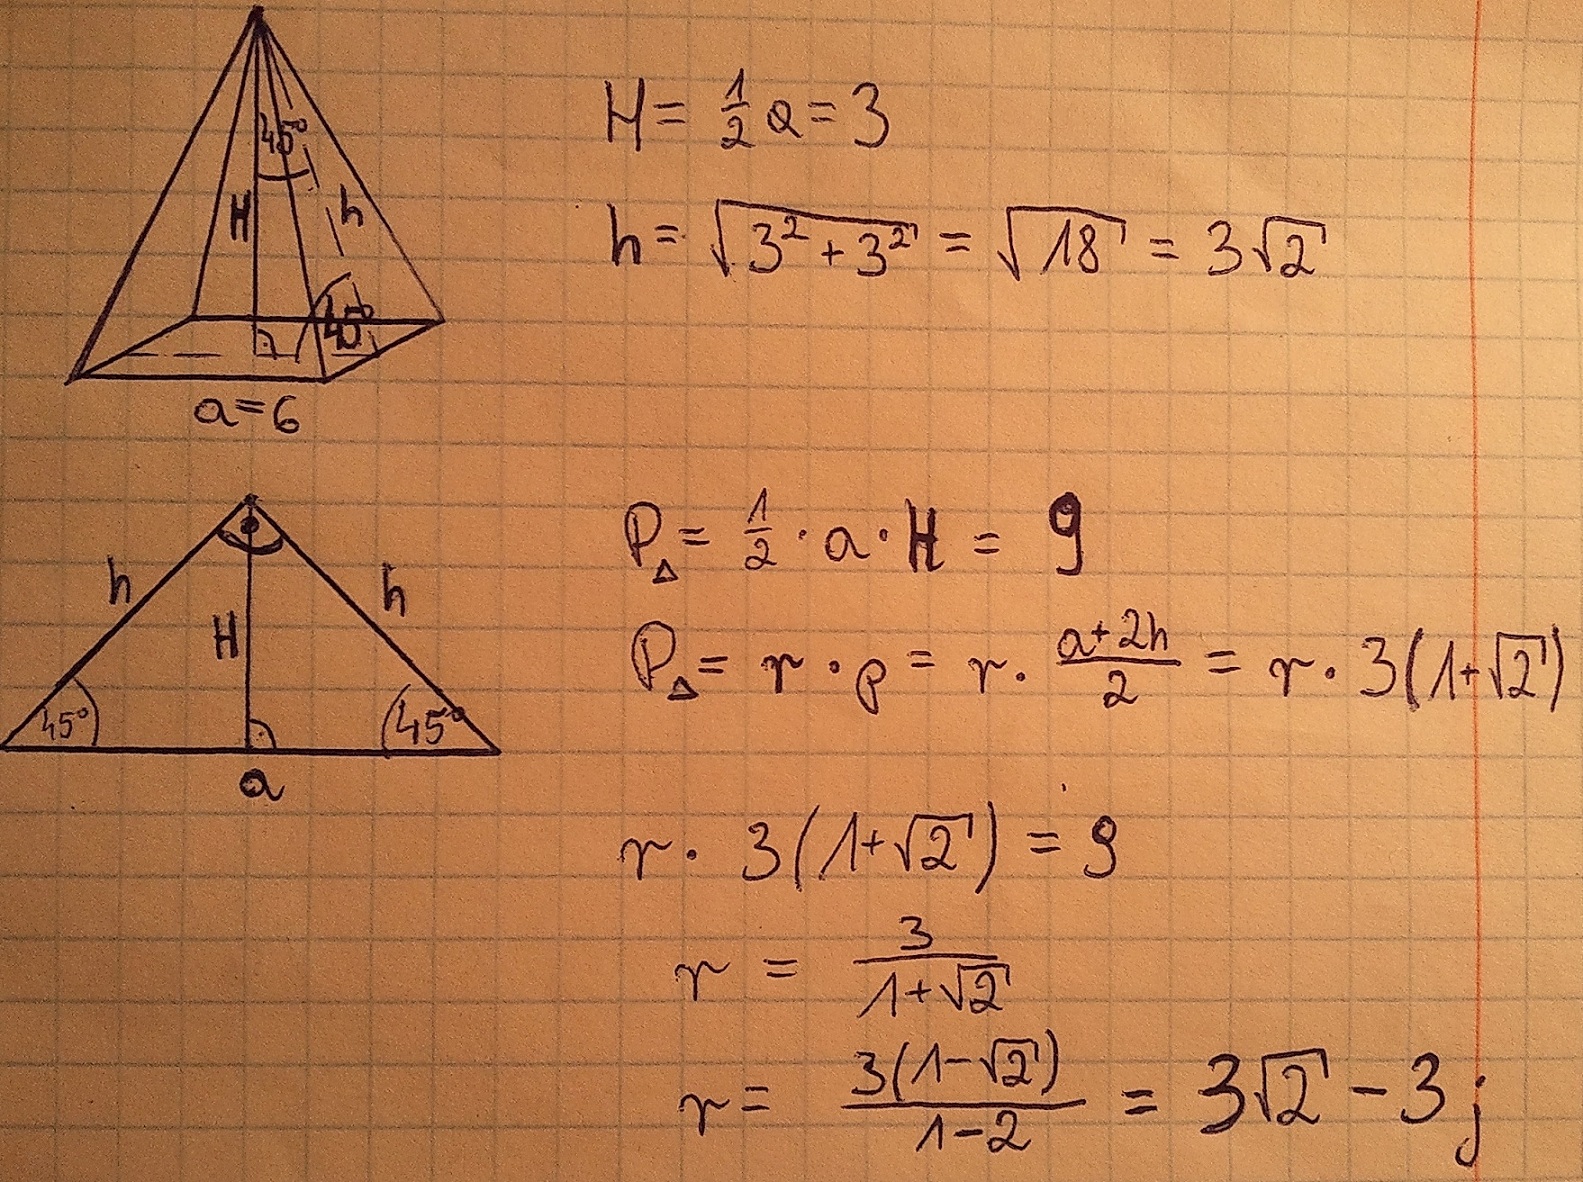 45°
H
h
45°
a=6
H = 1/2 a = 3
h = √(3² + 3²) = √18 = 3√2
h
H
h
45°
45°
a
P△ = 1/2 · a · H = 9
P△ = r · p = r · (a+2h)/2 = r · 3(1+√2)
r · 3(1+√2) = 9
r = 3/(1+√2)
r = 3(1-√2)/(1-2) = 3√2 - 3 j